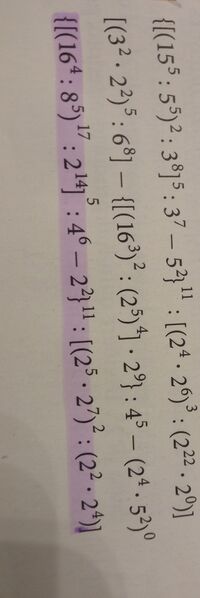 {[(15⁵ : 5⁵)² : 3⁸]⁵ : 3⁷ − 5²}¹¹ : [(2⁴ · 2⁶)³ : (2²² · 2⁰)]
[(3² · 2²)⁵ : 6⁸] − {[(16³)² : (2⁵)⁴] · 2⁹} : 4⁵ − (2⁴ · 5²)⁰
{[(16⁴ : 8⁵)¹⁷ : 2¹⁴]⁵ : 4⁶ − 2²}¹¹ : [(2⁵ · 2⁷)² : (2² · 2⁴)]